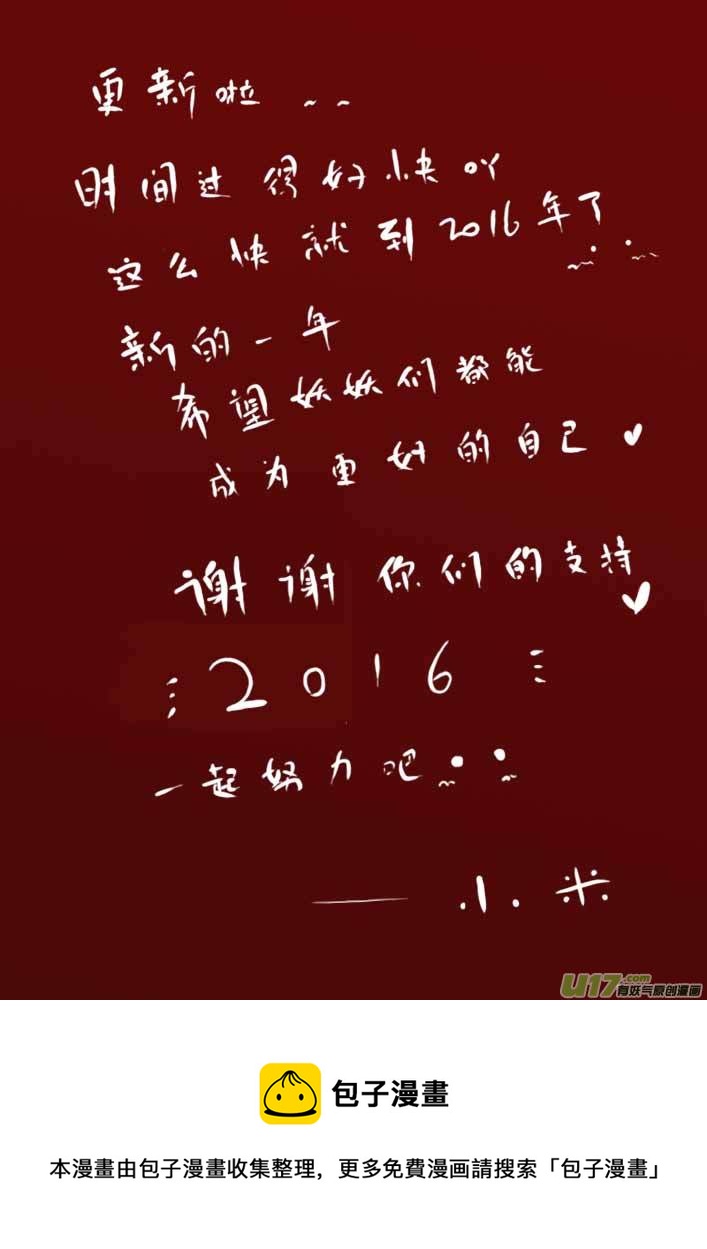 更新啦~~
时间过得好快吖
这么快就到2016年了~~
新的一年
希望妖妖们都能
成为更好的自己♥
谢谢你们的支持♥
2016
一起努力吧
——小米
U17.com
有妖气原创漫画
包子漫畫
本漫畫由包子漫畫收集整理，更多免費漫画請搜索「包子漫畫」